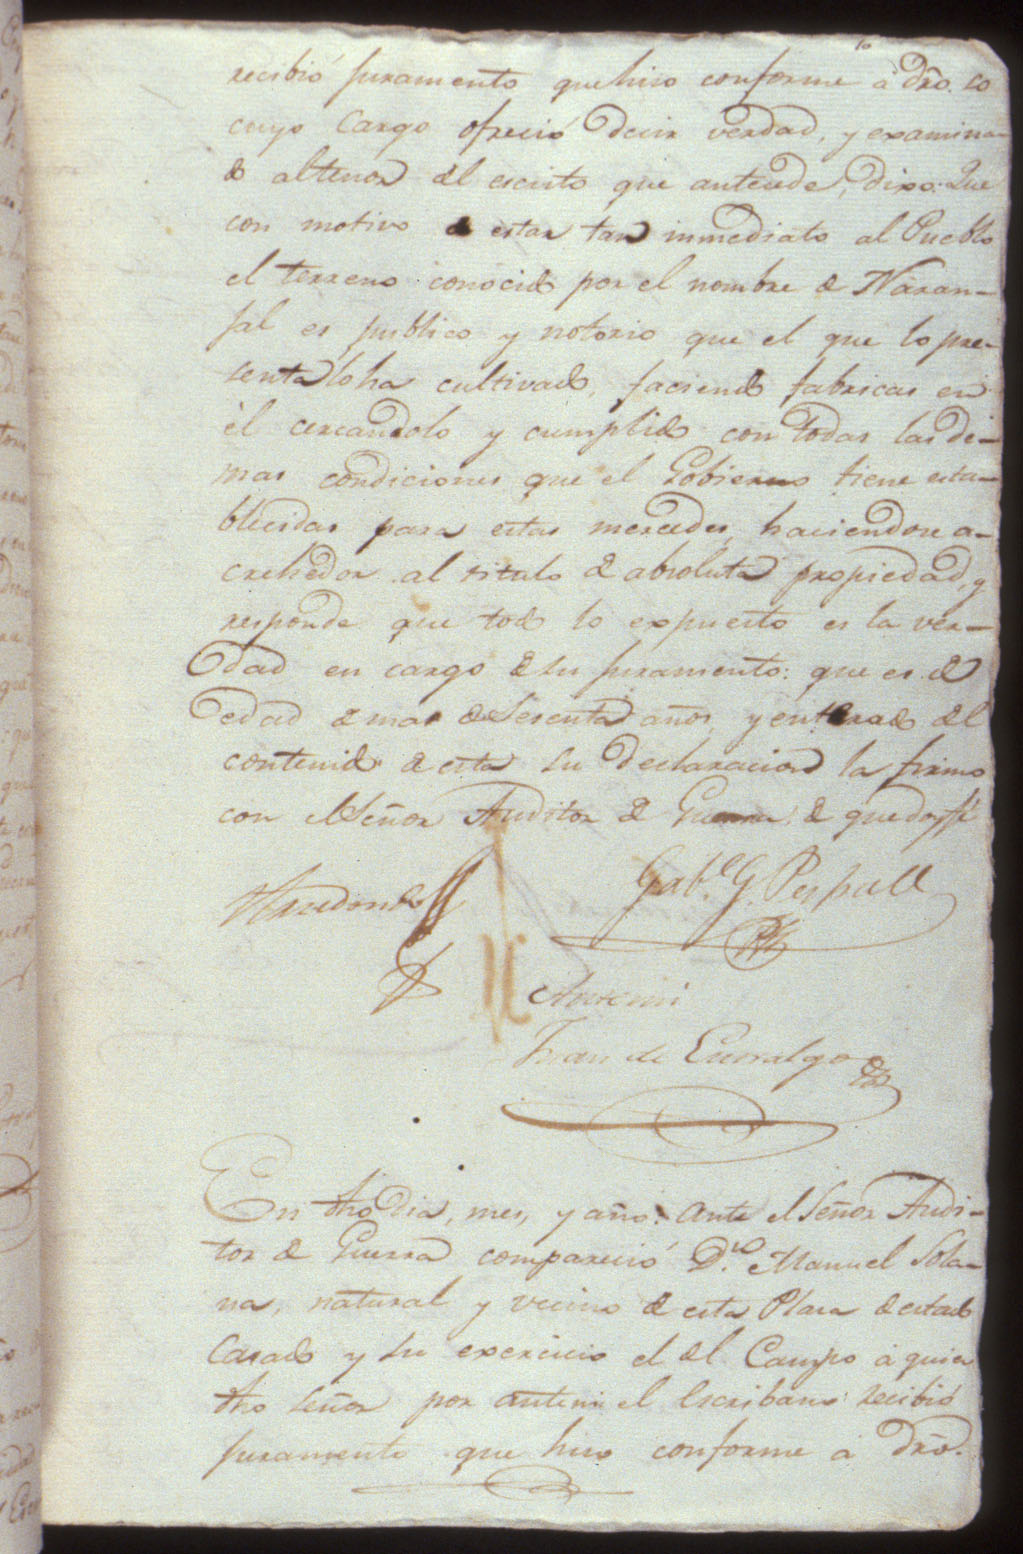 recibió juramento que hiso conforme à dro. so
cuyo cargo ofreció decir verdad, y examina-
do al tenor del escrito que antecede, dixo: Que
con motivo de estar tan inmediato al Pueblo
el terreno conocido por el nombre de Naran-
jal es publico y notorio que el que lo pre-
senta lo ha cultivado, faciendo fabricas en
èl cercandolo y cumplido con todas las de-
mas condiciones que el Gobierno tiene esta-
blecidas para estas mercedes, haciendose a-
crehedor al titulo de absoluta propiedad, y
responde que todo lo expuesto es la ver-
dad en cargo de su juramento: que es de
edad de mas de Sesenta años, y enterado del
contenido de esta su declaracion la firmo
con el Señor Auditor de Guerra de que doy fé
Arredondo
Gabl. G. Perpall
Ante mi
Juan de Entralgo
En dho dia, mes, y año: ante el Señor Audi-
tor de Guerra compareció Dn. Manuel Sola-
na, natural y vecino de esta Plaza de estado
Casado y su exercicio el del Campo à quien
dho Señor por ante mi el Escribano recibió
juramento que hiso conforme à dro.